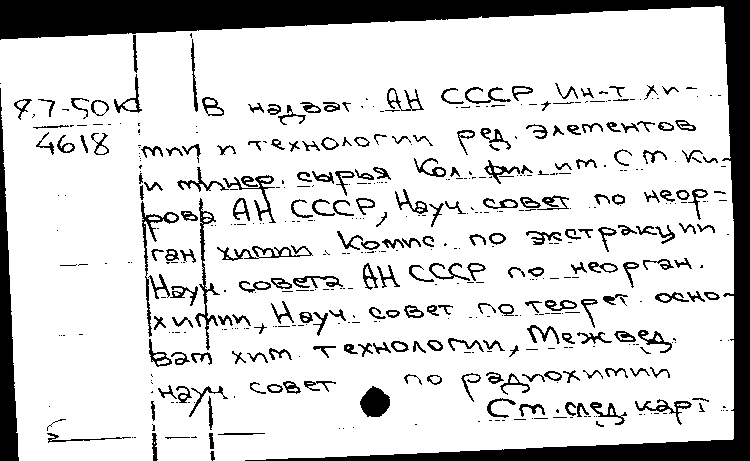 8.7-50К В надзаг: АН СССР, Ин-т хи-
4618
мии и технологии ред. элементов
и минер. сырья Кол. фил. им. С М Ки-
рова АН СССР, Науч. совет по неор-
ган химии. Комис. по экстракции
Науч. совета АН СССР по неорган.
химии, Науч. совет по теорет. осно-
вам хим. технологии, Межвед.
науч. совет по радиохимии
См. след. карт.